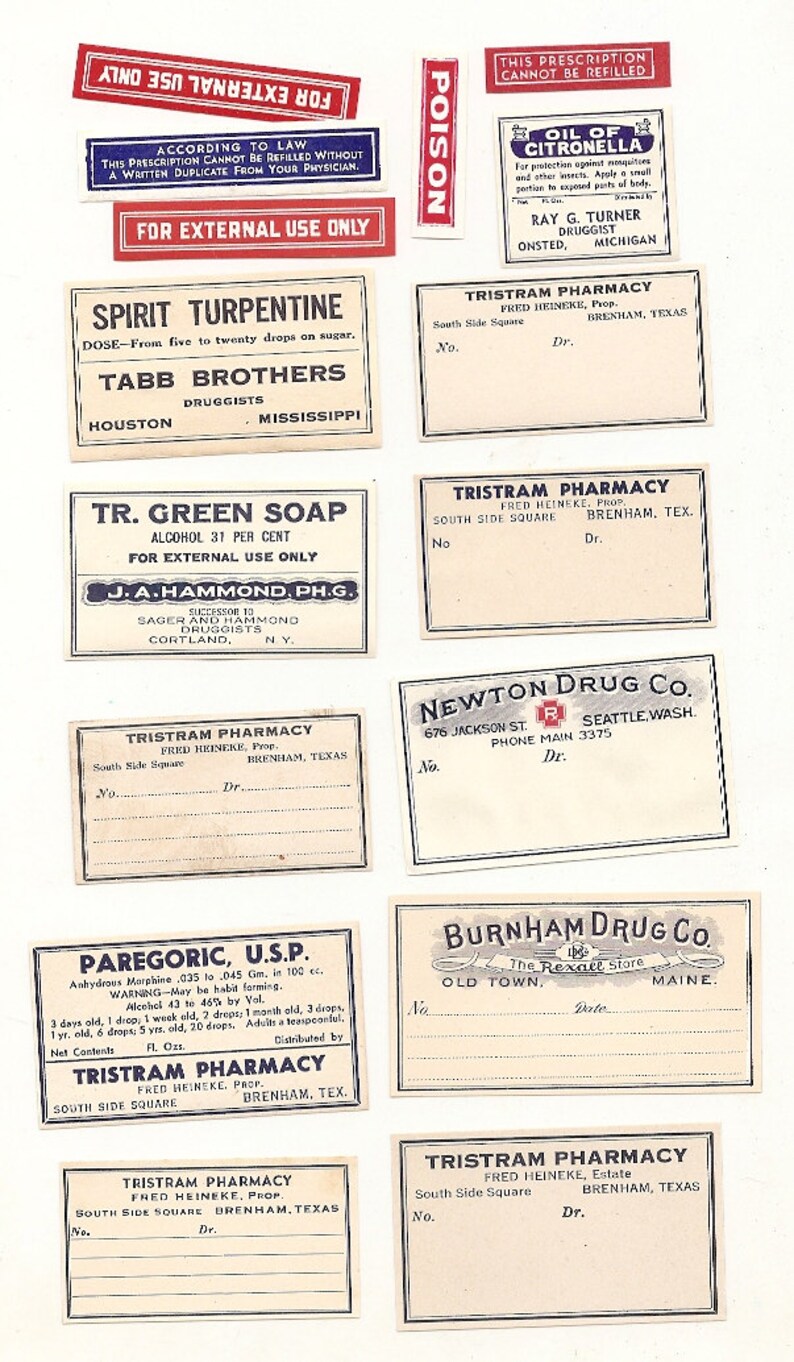 FOR EXTERNAL USE ONLY
POISON
THIS PRESCRIPTION
CANNOT BE REFILLED
ACCORDING TO LAW
THIS PRESCRIPTION CANNOT BE REFILLED WITHOUT
A WRITTEN DUPLICATE FROM YOUR PHYSICIAN.
FOR EXTERNAL USE ONLY
OIL OF
CITRONELLA
For protection against mosquitoes
and other insects. Apply a small
portion to exposed parts of body.
Net Fl. Ozs. Distributed by
RAY G. TURNER
DRUGGIST
ONSTED, MICHIGAN
SPIRIT TURPENTINE
DOSE—From five to twenty drops on sugar.
TABB BROTHERS
DRUGGISTS
HOUSTON MISSISSIPPI
TRISTRAM PHARMACY
FRED HEINEKE, Prop.
South Side Square BRENHAM, TEXAS
No. Dr.
TR. GREEN SOAP
ALCOHOL 31 PER CENT
FOR EXTERNAL USE ONLY
J. A. HAMMOND, PH.G.
SUCCESSOR TO
SAGER AND HAMMOND
DRUGGISTS
CORTLAND, N.Y.
TRISTRAM PHARMACY
FRED HEINEKE, PROP.
SOUTH SIDE SQUARE BRENHAM, TEX.
No Dr.
TRISTRAM PHARMACY
FRED HEINEKE, Prop.
South Side Square BRENHAM, TEXAS
No. Dr.
NEWTON DRUG CO.
R
676 JACKSON ST. SEATTLE, WASH.
PHONE MAIN 3375
No. Dr.
PAREGORIC, U.S.P.
Anhydrous Morphine .035 to .045 Gm. in 100 cc.
WARNING—May be habit forming.
Alcohol 43 to 46% by Vol.
3 days old, 1 drop; 1 week old, 2 drops; 1 month old, 3 drops,
1 yr. old, 6 drops; 5 yrs. old, 20 drops. Adults a teaspoonful.
Net Contents Fl. Ozs. Distributed by
TRISTRAM PHARMACY
FRED HEINEKE, PROP.
SOUTH SIDE SQUARE BRENHAM, TEX.
BURNHAM DRUG CO.
The Rexall Store
OLD TOWN, MAINE.
No. Date
TRISTRAM PHARMACY
FRED HEINEKE, PROP.
SOUTH SIDE SQUARE BRENHAM, TEXAS
No. Dr.
TRISTRAM PHARMACY
FRED HEINEKE, Estate
South Side Square BRENHAM, TEXAS
No. Dr.